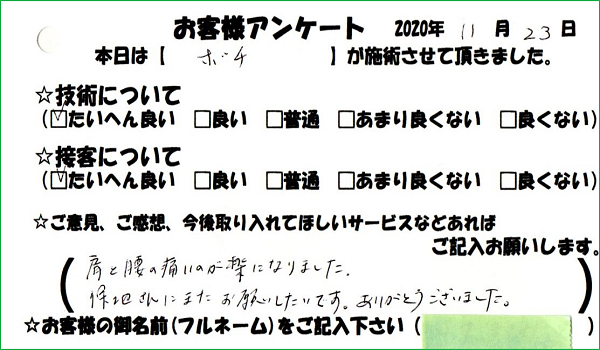 お客様アンケート 2020年 11 月 23 日
本日は【 ホ゛チ 】が施術させて頂きました。
☆技術について
(☑たいへん良い □良い □普通 □あまり良くない □良くない)
☆接客について
(☑たいへん良い □良い □普通 □あまり良くない □良くない)
☆ご意見、ご感想、今後取り入れてほしいサービスなどあれば
ご記入お願いします。
(肩と腰の痛いのが楽になりました。
保地さんにまたお願いしたいです。ありがとうございました。)
☆お客様の御名前(フルネーム)をご記入下さい( )